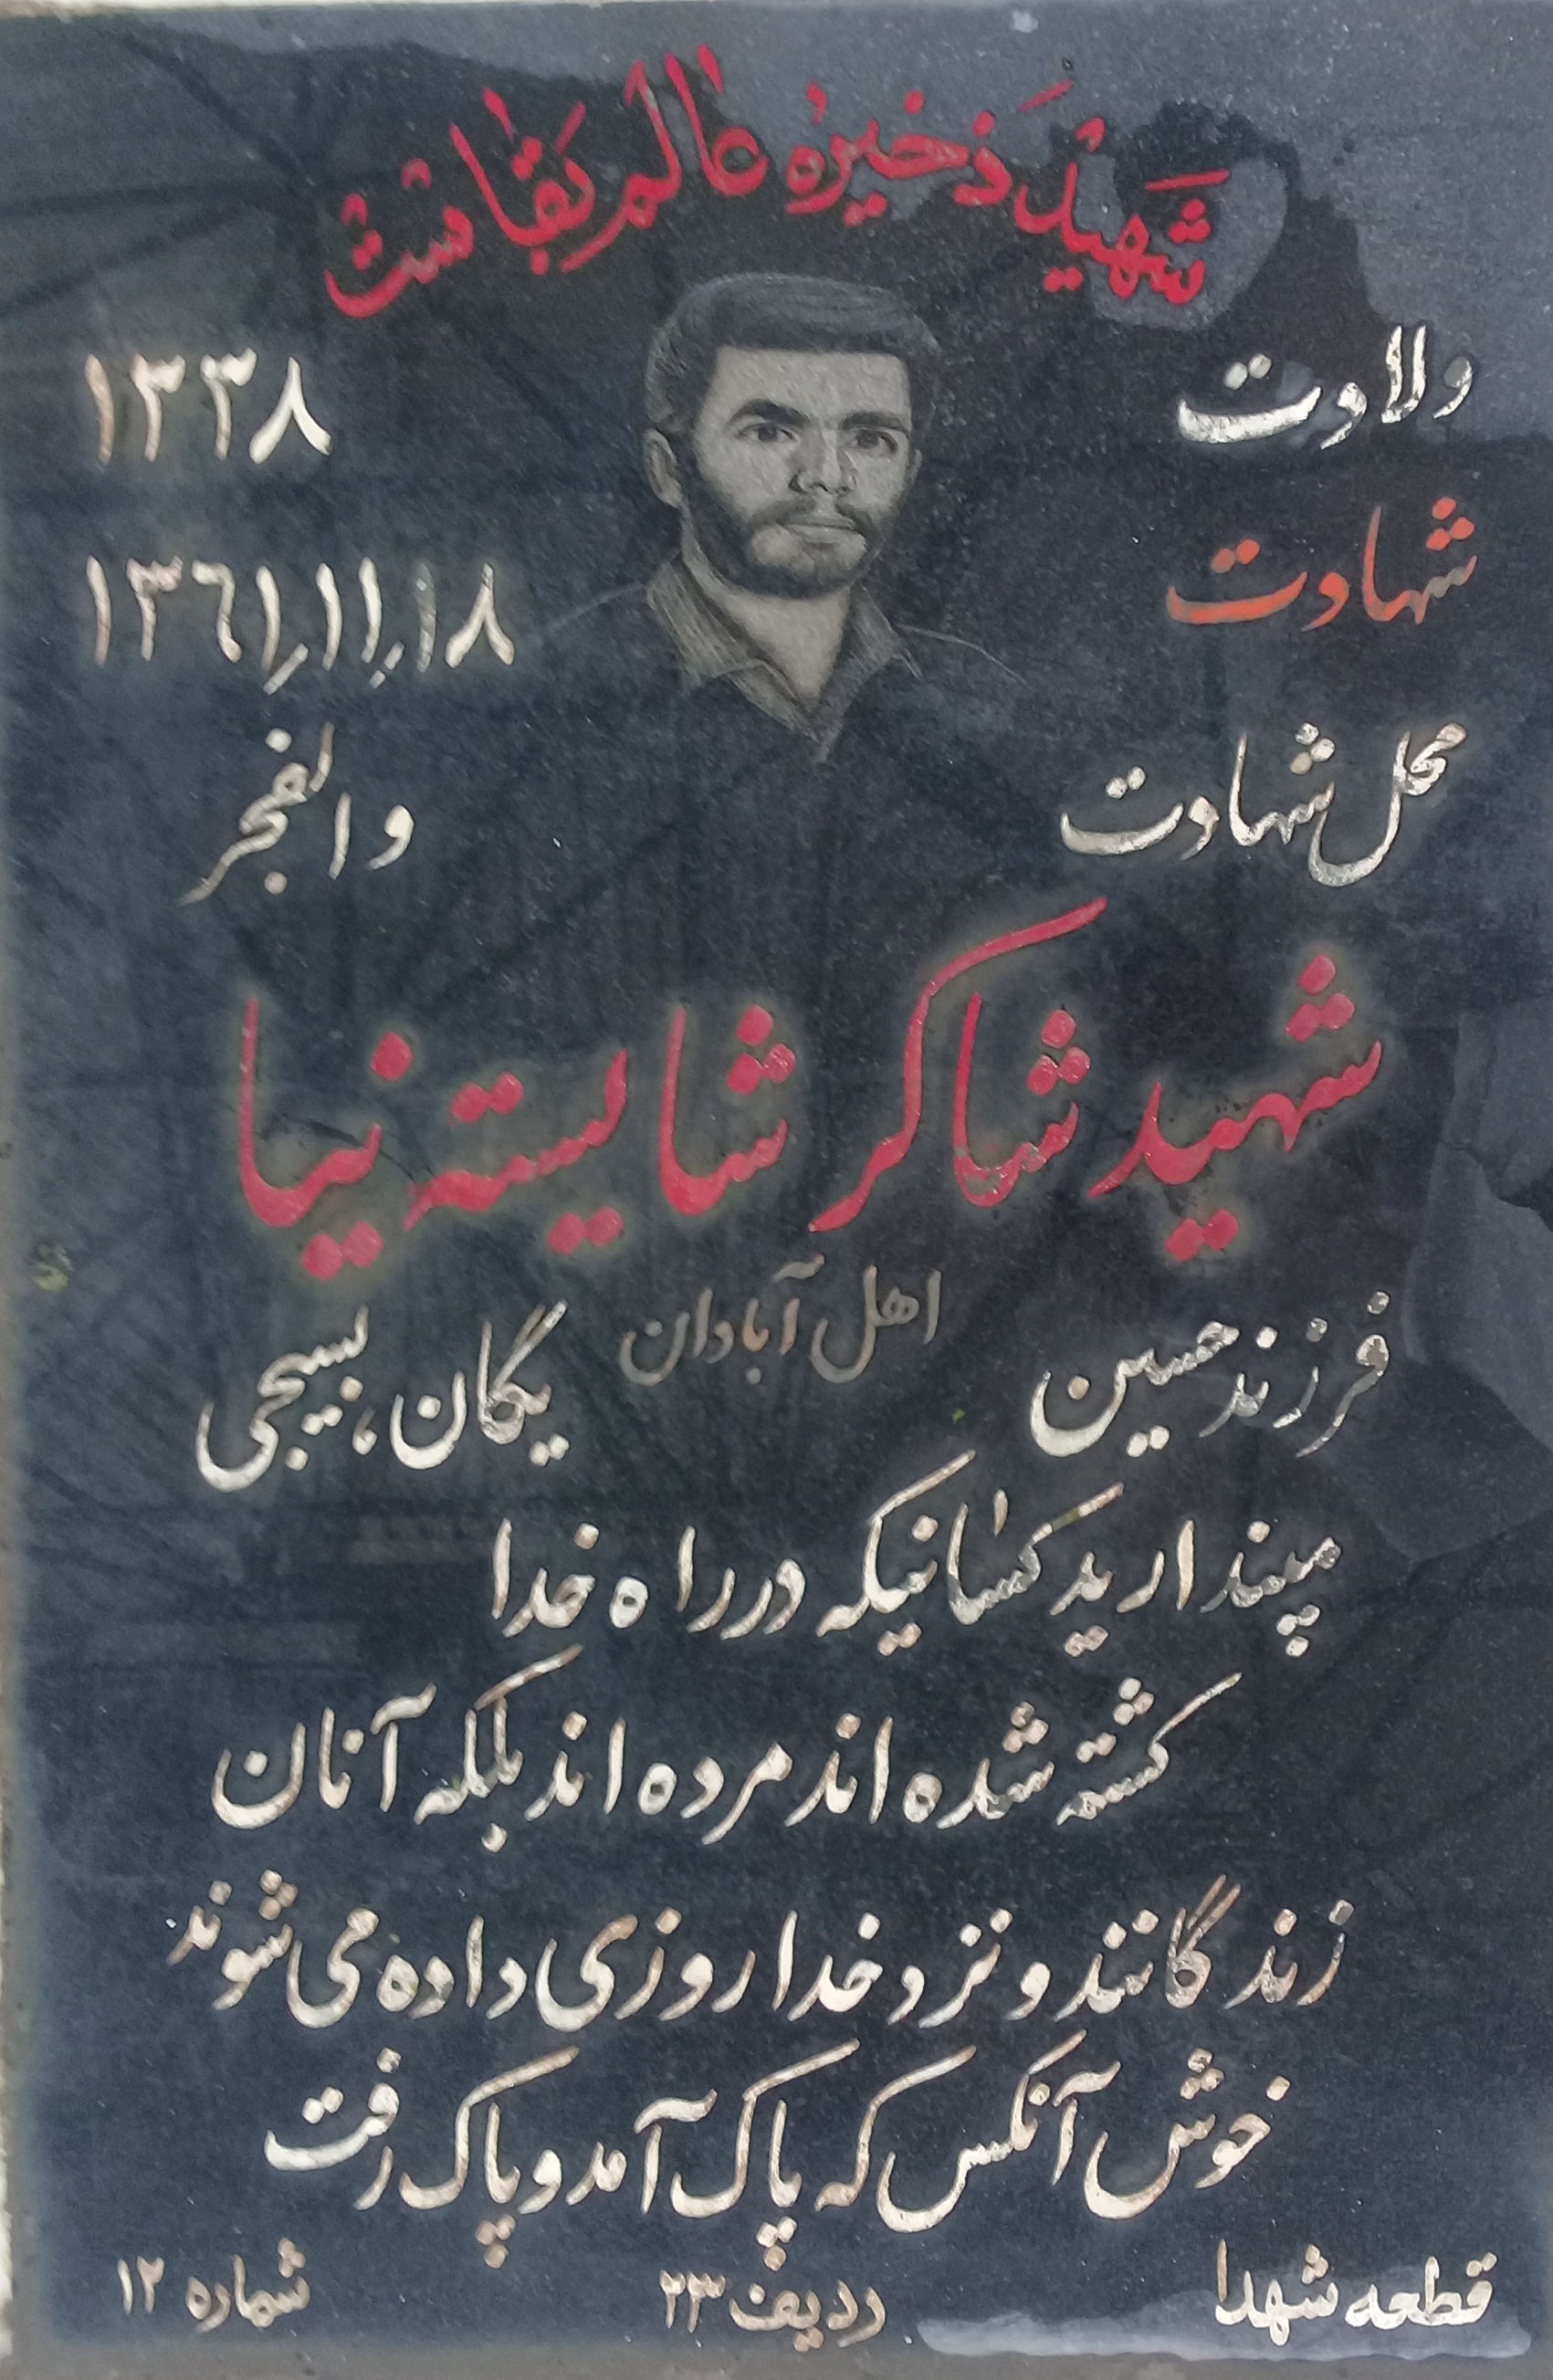 شهید ذخیره عالم بقاست
ولادت ۱۳۳۸
شهادت ۱۳۶۱٫۱۱٫۱۸
محل شهادت والفجر
شهید شاکر شایسته نیا
اهل آبادان
فرزند حسین یگان، بسیجی
مپندارید کسانیکه در راه خدا
کشته شده اند مرده اند بلکه آنان
زندگانند و نزد خدا روزی داده می شوند
خوش آنکس که پاک آمد و پاک رفت
قطعه شهدا ردیف ۲۳ شماره ۱۲